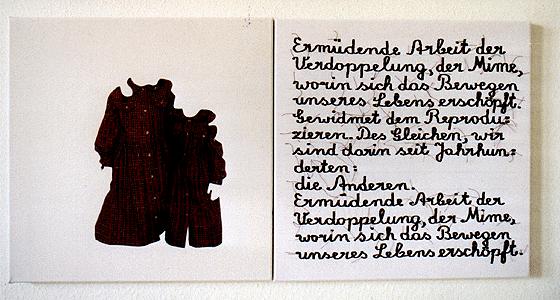 Ermüdende Arbeit der
Verdoppelung, der Mime,
worin sich das Bewegen
unseres Lebens erschöpft.
Gewidmet dem Reprodu=
zieren. Des Gleichen, wir
sind darin seit Jahrhun=
derten:
die Anderen.
Ermüdende Arbeit der
Verdoppelung, der Mime,
worin sich das Bewegen
unseres Lebens erschöpft.